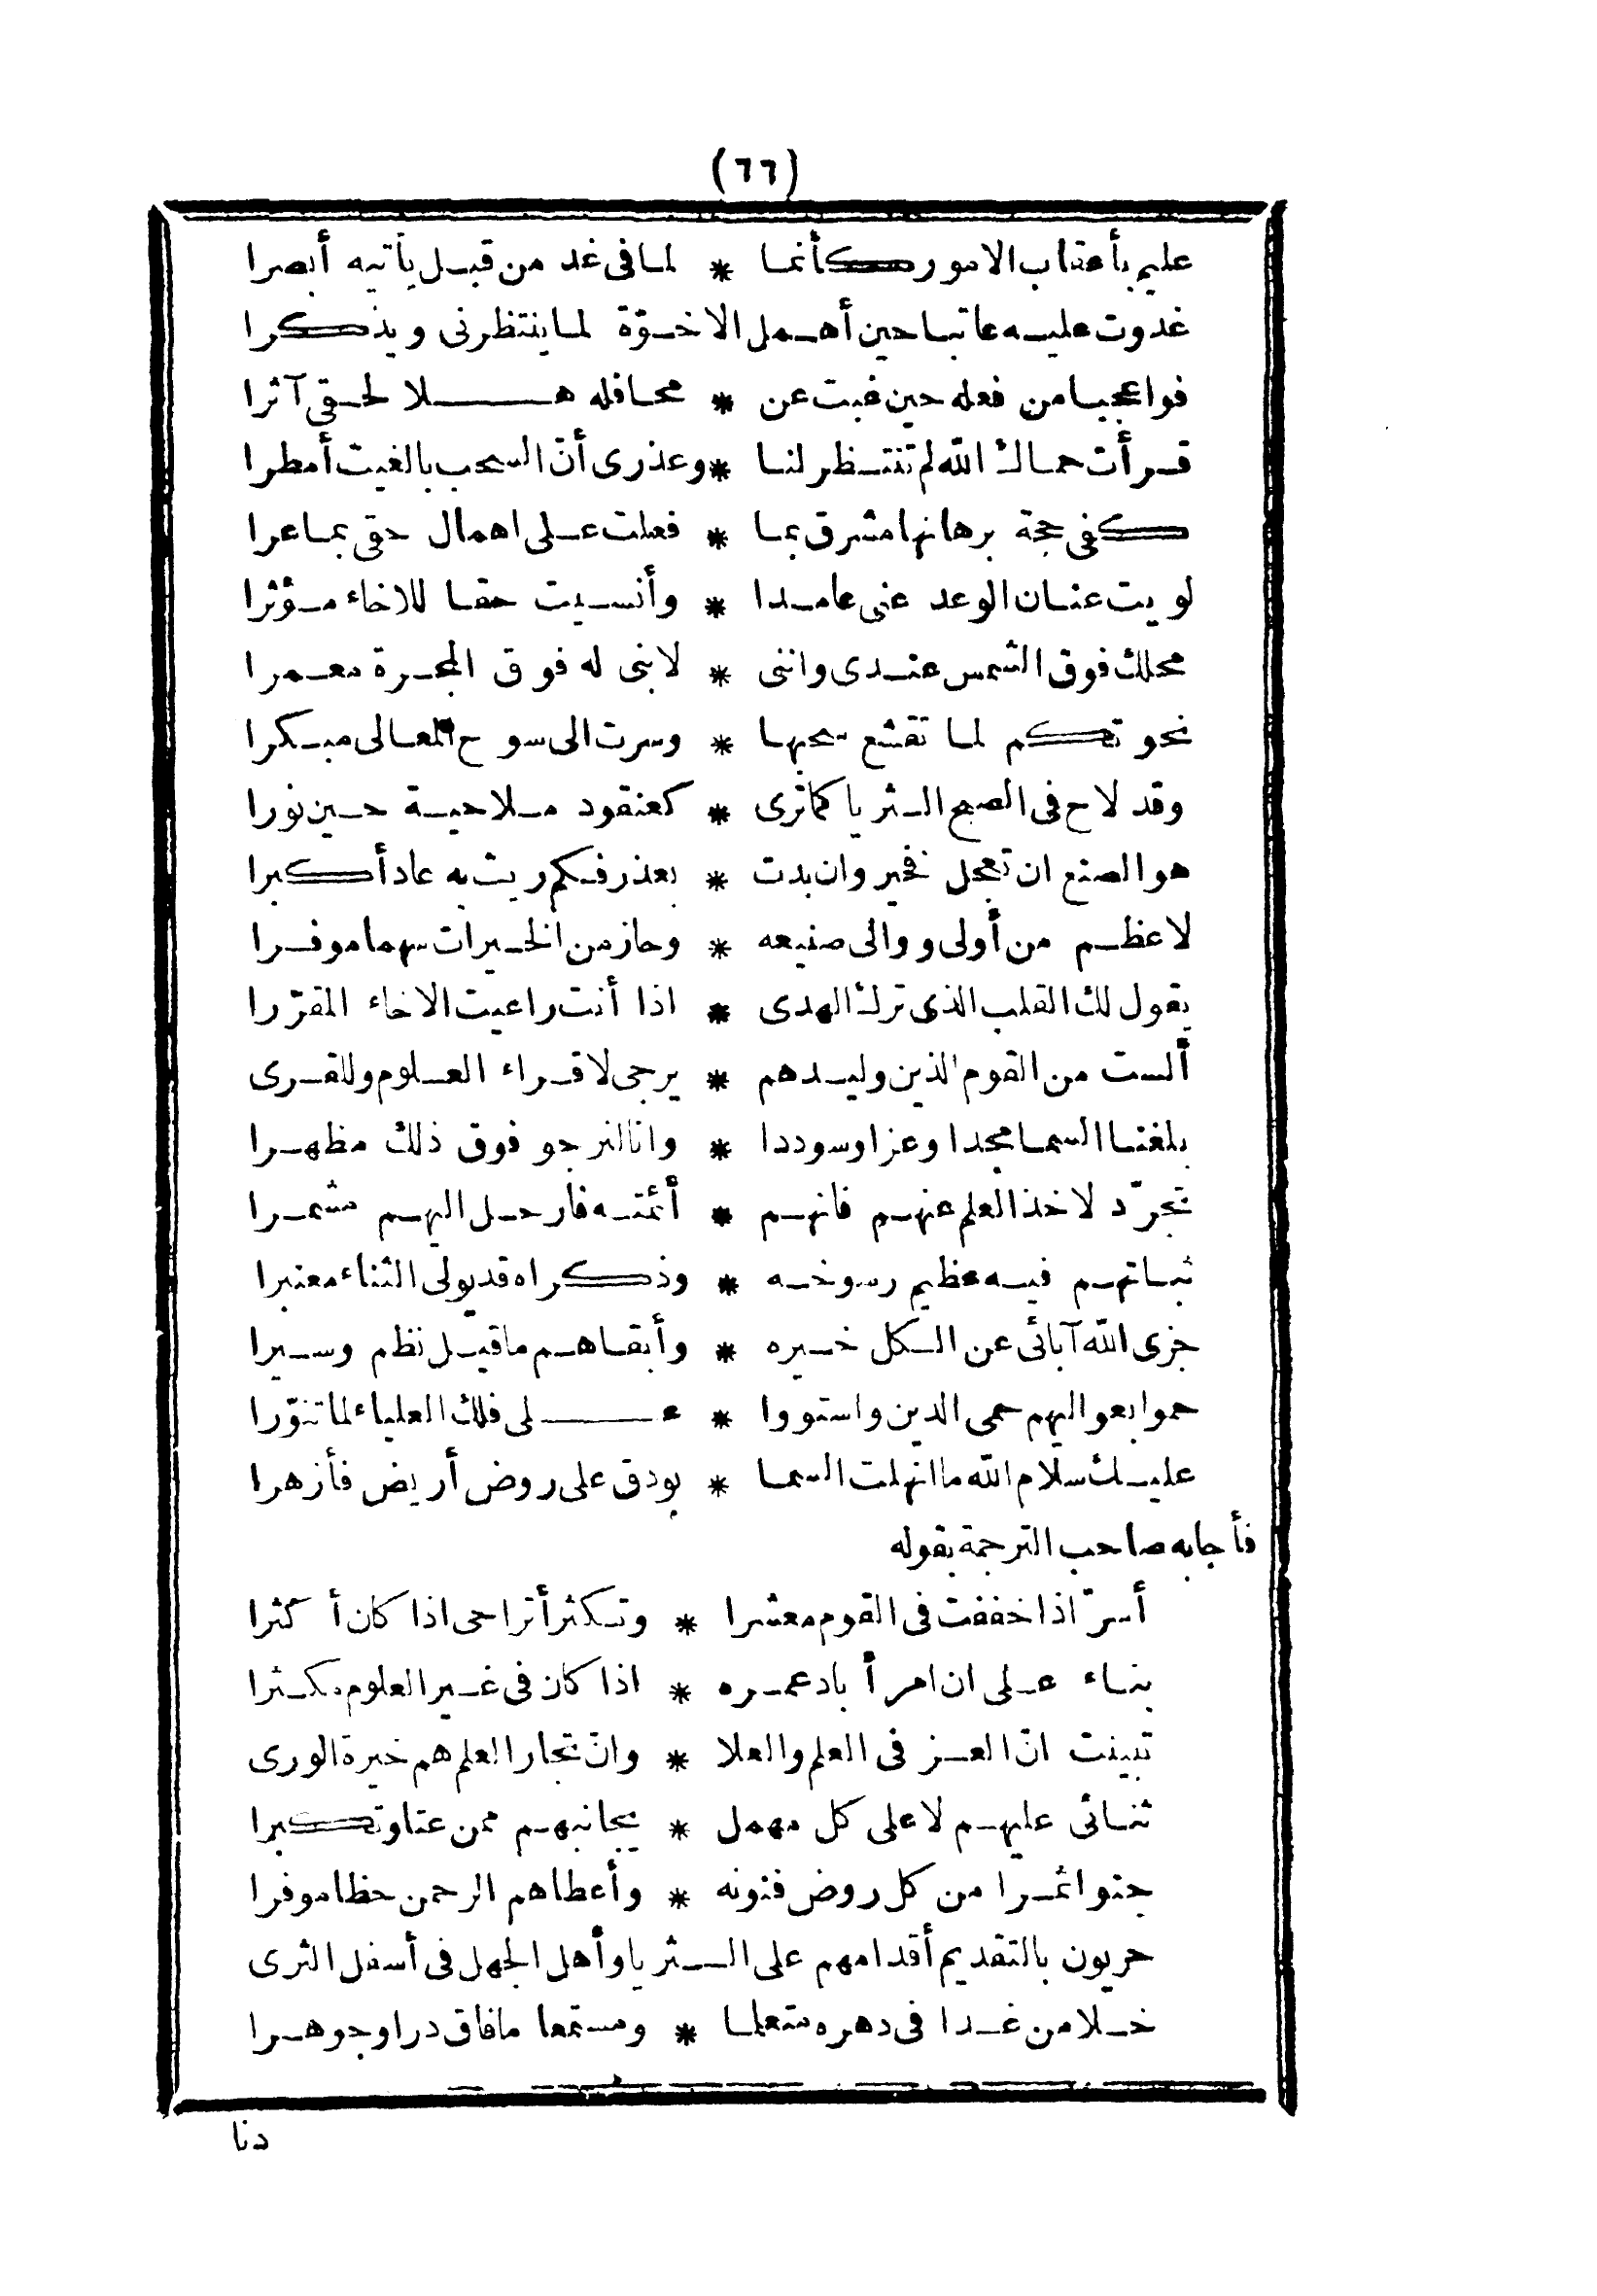 (٦٦)
عليم بأعقاب الامور كأنما * لما فى غد من قبل يأتيه أبصرا
غدوت عليه عاتبا حين أهمل الاخوّة لما ينتظرنى ويذكرا
فواعجبا من فعله حين غبت عن * محافله هلا لحقى آثرا
قرأت حماك الله لم تنتظر لنا * وعذرى أنّ السحب بالغيث أمطرا
كفى حجة برهانها مشرق بما * فعلت على اهمال حقى بما عرا
لويت عنان الوعد عنى عامدا * وأنسيت حقا للاخاء مؤثرا
محلك فوق الشمس عندى واننى * لابنى له فوق المجرة معمرا
نحوتكم لما تقشع سحبها * وسرت الى سوح المعالى مبكرا
وقد لاح فى الصبح الثريا كما ترى * كعنقود ملاحية حين نورا
هو الصنع ان تعجل فخير وان بدت * بعذر فكم ريث به عاد أكبرا
لاعظم من أولى ووالى صنيعه * وحاز من الخيرات سهما موفرا
يقول لك القلب الذى ترك الهدى * اذا أنت راعيت الاخاء المقرّرا
ألست من القوم الذين وليدهم * يرجى لاقراء العلوم وللقرى
بلغنا السما مجدا وعزا وسوددا * وانا لنرجو فوق ذلك مظهرا
تجرّد لاخذ العلم عنهم فانهم * أئمته فأرحل اليهم مشمرا
ثباتهم فيه عظيم رسوخه * وذكراه قد يولى الثناء معتبرا
جزى الله آبائى عن الكل خيره * وأبقاهم ما قيل نظم وسيرا
حموا بعواليهم حمى الدين واستووا * على فلك العلياء لما تنوّرا
عليك سلام الله ما انهلت السما * بودق على روض أريض فأزهرا
فأجابه صاحب الترجمة بقوله
أسرّ اذا خففت فى القوم معشرا * وتكثر أتراحى اذا كان أكثرا
بناء على ان امرأ باد عمره * اذا كان فى غير العلوم مكثرا
تبينت انّ العز فى العلم والعلا * وانّ تجار العلم هم خيرة الورى
ثنائى عليهم لا على كل مهمل * يجانبهم ممن عتا وتكبرا
جنوا ثمرا من كل روض فنونه * وأعطاهم الرحمن حظا موفرا
حريون بالتقديم أقدامهم على الثريا وأهل الجهل فى أسفل الثرى
خلا من غدا فى دهره متعلما * ومستمعا ما فاق درا وجوهرا
دنا